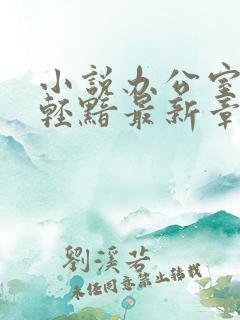 小說办公室
輕黯最新章
劉溪若
未经同意禁止转载